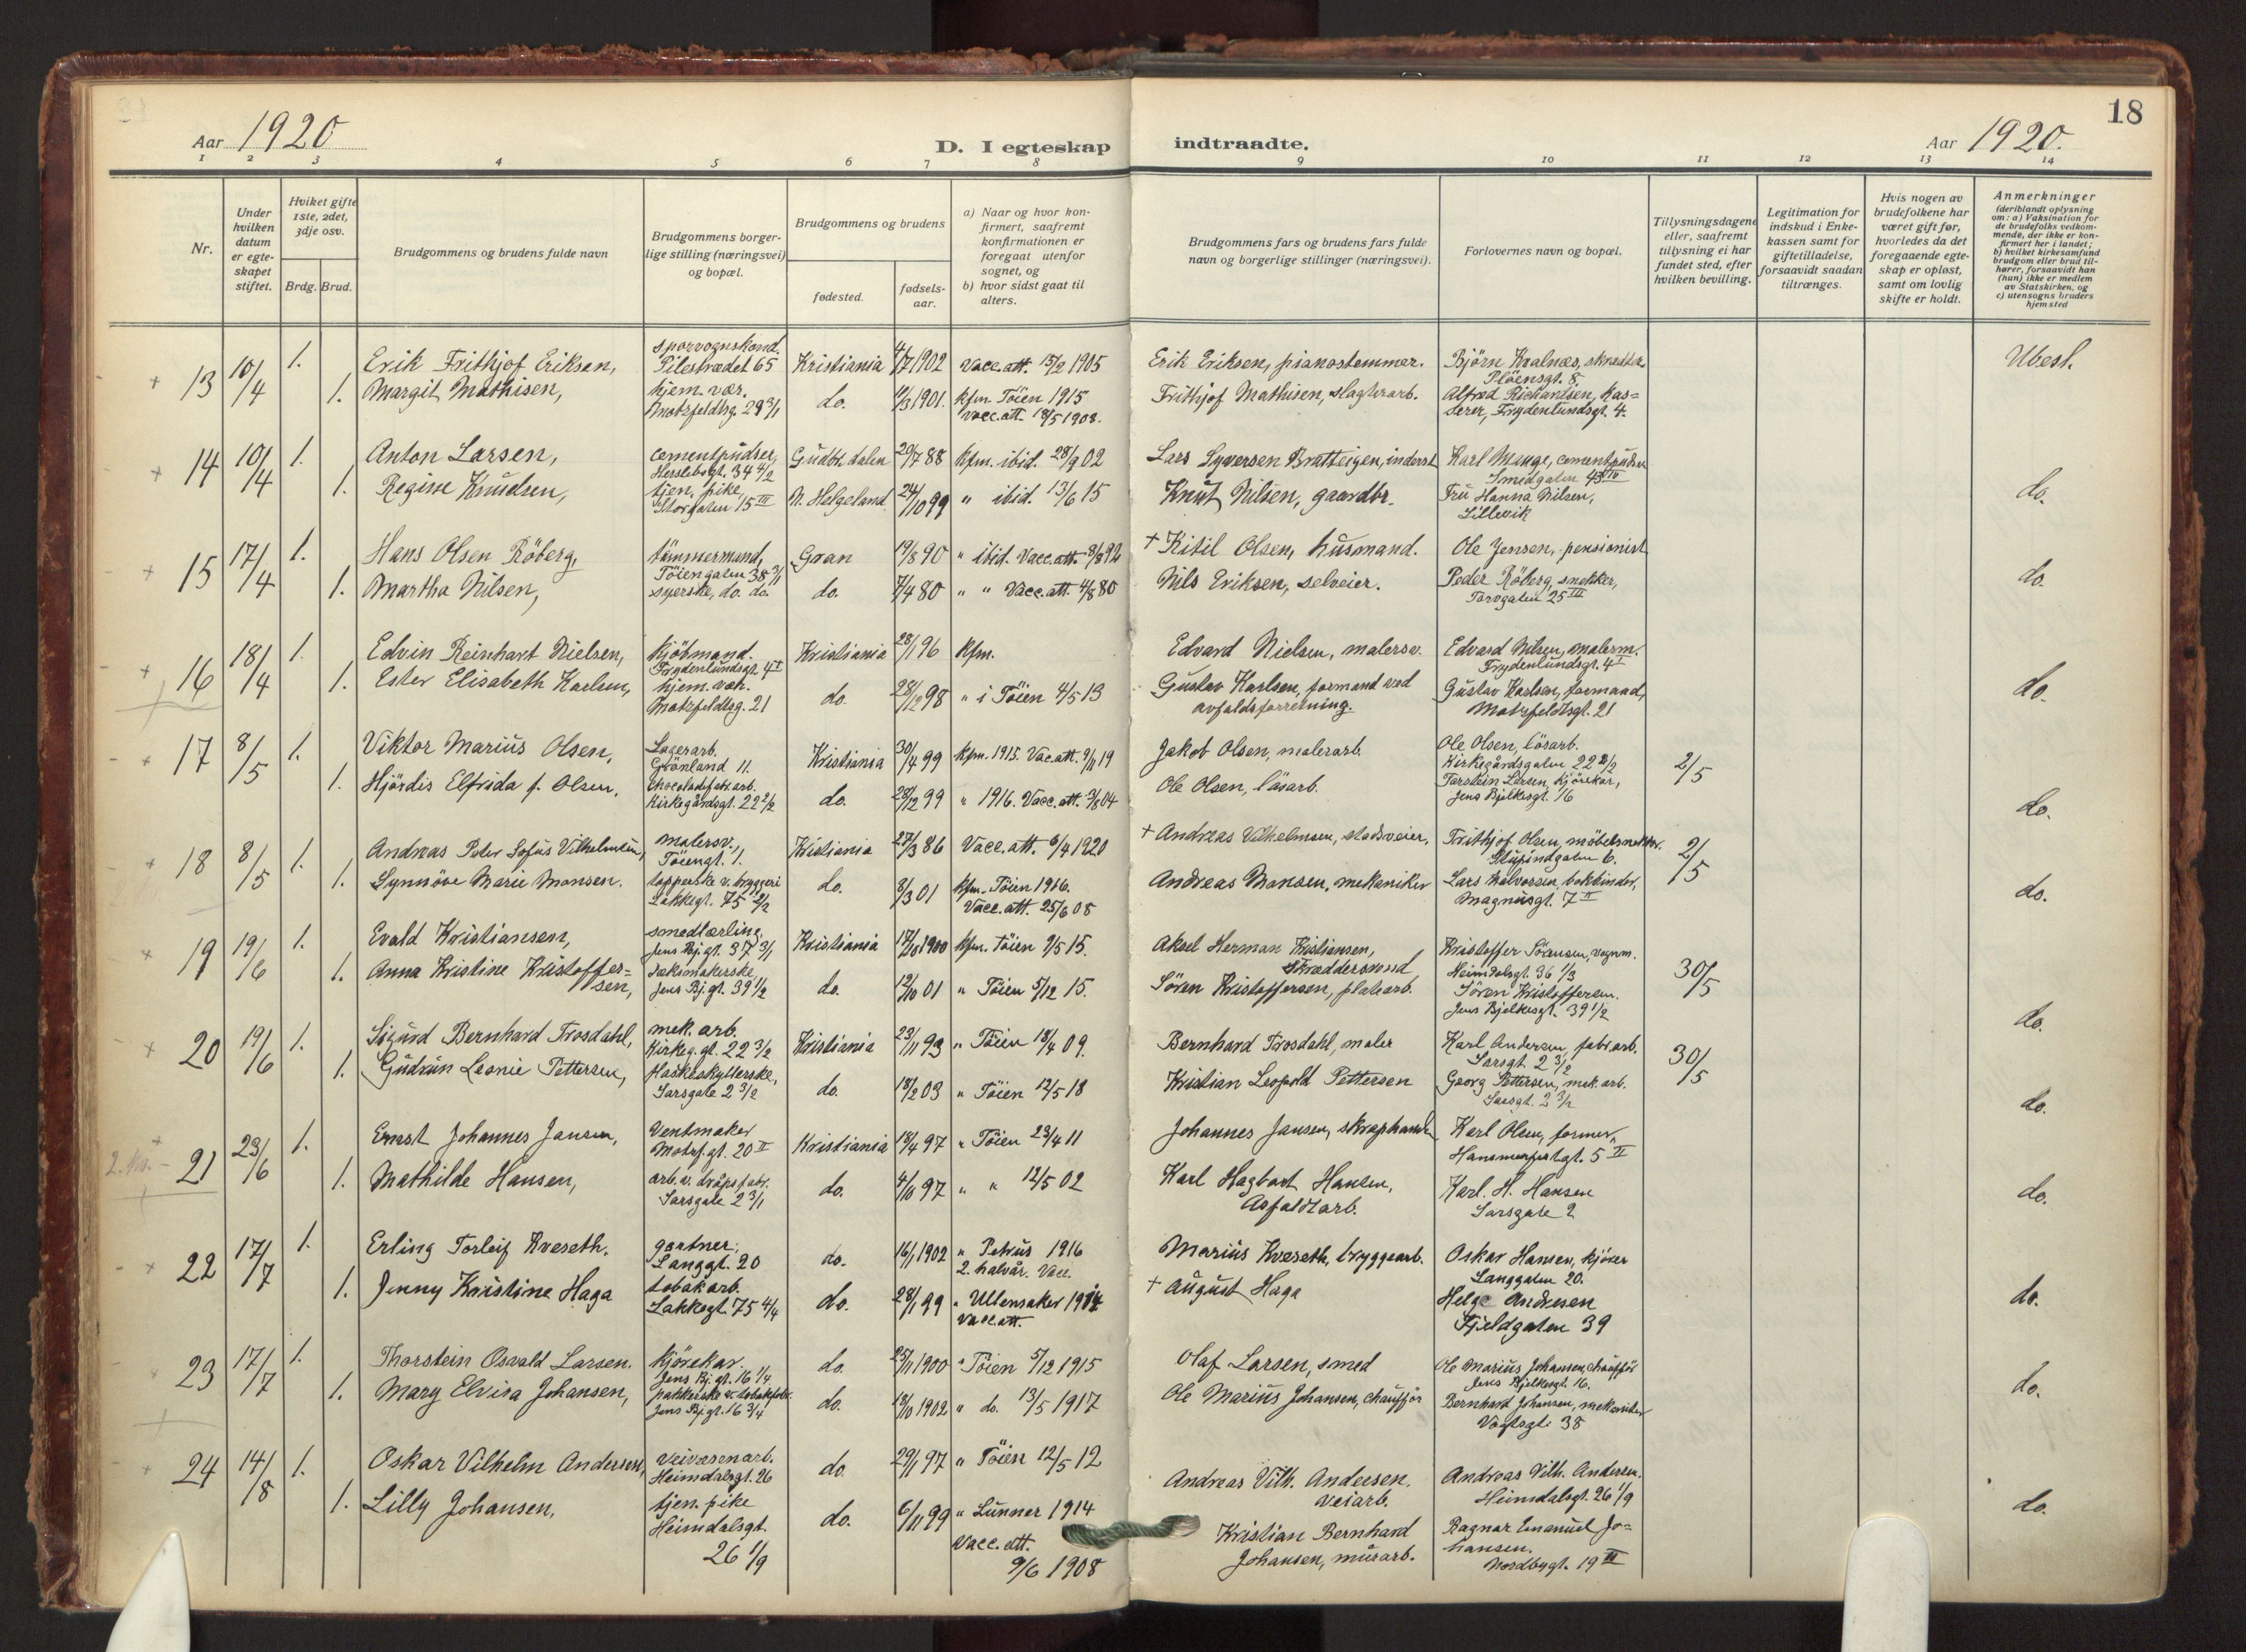 18
Aar 1920
D. I egteskap indtraadte.
Aar 1920.
1 2 3 4 5 6 7 8 9 10 11 12 13 14
Nr.
Under hvilken datum er egteskapet stiftet.
Hviket gifte 1ste, 2det, 3dje osv.
Brdg. Brud.
Brudgommens og brudens fulde navn
Brudgommens borgerlige stilling (næringsvei) og bopæl.
Brudgommens og brudens
fødested.
fødselsaar.
a) Naar og hvor konfirmert, saafremt konfirmationen er foregaat utenfor sognet, og
b) hvor sidst gaat til alters.
Brudgommens fars og brudens fars fulde navn og borgerlige stillinger (næringsvei).
Forlovernes navn og bopæl.
Tillysningsdagene eller, saafremt tillysning ei har fundet sted, efter hvilken bevilling.
Legitimation for indskud i Enkekassen samt for giftetilladelse, forsaavidt saadan tiltrænges.
Hvis nogen av brudefolkene har været gift før, hvorledes da det foregaaende egteskap er opløst, samt om lovlig skifte er holdt.
Anmerkninger
(deriblandt oplysning om: a) Vaksination for de brudefolks vedkommende, der ikke er konfirmert her i landet; b) hvilket kirkesamfund brudgom eller brud tilhører, forsaavidt han (hun) ikke er medlem av Statskirken, og c) utensogns bruders hjemsted
13 10/4 1. Erik Frithjof Eriksen, sporvognskond. Pilestrædet 65 Kristiania 4/7 1902 Vacc. att. 15/2 1905 Erik Eriksen, pianostemmer. Björn Kvalnæs, skrædder Plöensgt. 8. Ubest.
1. Margit Mathisen, hjem. vær. Motzfeldtsg. 29 3/1 do. 1901. Kfm. Töien 1915 Vacc. att. 18/5 1908. Frithjof Mathisen, slagterarb. Alfred Richardsen, kasserer, Frydenlundsgt. 4.
14 10/4 1. Anton Larsen, cementpudser, Herslebsgt. 34 4/2 Gudbr. dalen 20/7 88 Kfm. ibid. 28/9 02 Lars Syversen Bratteigen, inderst Karl Mauge, cementpudser Smedgaten
1. Regine Knudsen, tjen. pike, Storgaten 15 III N. Helgeland 24/10 99 " ibid. 13/6 15 Knut Nilsen, gaardbr. Fru Hanna Nilsen, Lillevik do.
15 17/4 1. Hans Olsen Röberg, tömmermand, Töiengaten 38 3/1 Gran 19/8 90 " ibid. Vacc. att. 8/8 92 + Kitil Olsen, husmand. Ole Jensen, pensionist
1. Martha Nilsen, syerske, do. do. do. 7/4 80 " " Vacc. att. 4/8 80 Nils Eriksen, selveier. Peder Röberg, snekker, Torvgaten 25 III do.
16 18/4 1. Edvin Reinhart Nielsen, kjöbmand. Frydenlundsgt. 4 I Kristiania 28/1 96 Kfm. Edvard Nielsen, malersv. Edvard Nilsen, malerm. Frydenlundsgt. 4 I
1. Ester Elisabeth Karlsen, hjem. vær. Motzfeldtsg. 21 do. 28/12 98 " i Töien 4/5 13 Gustav Karlsen, formand ved avfaldsforretning. Gustav Karlsen, formand, Motzfeldtsgt. 21 do.
17 8/5 1. Viktor Marius Olsen, Lagerarb. Grönland 11. Kristiania 30/4 99 Kfm. 1915. Vac. att. 9/11 19 Jakob Olsen, malerarb. Ole Olsen, lösarb. Kirkegårdsgaten 22 2/2 2/5
1. Hjördis Elfrida f. Olsen, chocoladefabr. arb. Kirkegårdsgt. 22 2/2 do. 28/12 99 " 1916. Vacc. att. 3/8 04 Ole Olsen, lösarb. Torstein Larsen, kjörekar, Jens Bjelkesgt. 16 do.
18 8/5 1. Andreas Peter Sofus Vilhelmsen, malersv., Töiengt. 1. Kristiania 27/3 86 Vacc. att. 6/4 1920 + Andreas Vilhelmsen, stadsveier, Frithjof Olsen, möbelsnekker. Stupindgaten 6. 2/5
1. Synnöve Marie Monsen. topperske v. bryggeri Lakkegt. 75 2/2 do. 8/3 01 Kfm. Töien 1916. Vacc. att. 25/6 08 Andreas Monsen, mekaniker Lars Halvorsen, bokbinder, Magnusgt. 7 II do.
19 19/6 1. Evald Kristiansen, smedlærling, Jens Bj. gt. 37 3/1 Kristiania 17/10 1900 Kfm. Töien 9/5 15. Aksel Herman Kristiansen, Skræddersvend, Kristoffer Sörensen, vognm. Heimdalsgt. 36 1/3 30/5
1. Anna Kristine Kristoffersen, sæksmakerske, Jens Bj. gt. 39 1/2 do. 12/10 01 " Töien 5/12 15. Sören Kristoffersen, platearb. Sören Kristoffersen. Jens Bjelkesgt. 39 1/2 do.
20 19/6 1. Sigurd Bernhard Trosdahl, mek. arb. Kirkeg. gt. 22 3/2 Kristiania 23/11 93 " Töien 18/4 09. Bernhard Trosdahl, maler Karl Andersen, fabr. arb. Sarsgt. 2 3/2 30/5
1. Gudrun Leonie Pettersen, flaskeskyllerske, Sarsgate 2 3/2 do. 18/2 03 " Töien 12/5 18 Kristian Leopold Pettersen Georg Pettersen, mek. arb. Sarsgt. 2 3/2 do.
21 23/6 1. Ernst Johannes Jansen, Ventmaker Motzf. gt. 20 II Kristiania 18/4 97 " Töien 23/4 11 Johannes Jansen, skraphandl. Karl Olsen, former, Hammerfestgt. 5 II
1. Mathilde Hansen, arb. v. dropsfabr. Sarsgate 2 3/1 do. 4/10 97 " " 12/5 02 Karl Hagbart Hansen, Asfaldtarb. Karl. H. Hansen Sarsgate 2 do.
22 17/7 1. Erling Torleif Kveseth. gartner, Langgt. 20 do. 16/1 1902 " Petrus 1916 2. halvår. Vacc. Marius Kveseth, bryggearb. Oskar Hansen, kjörer Langgaten 20.
1. Jenny Kristine Haga tobakarb. Lakkegt. 75 4/4 do. 28/1 99 " Ullensaker 1914 Vacc. att. + August Haga Helge Andresen Fjeldgaten 39 do.
23 17/7 1. Thorstein Osvald Larsen. kjörekar. Jens Bj. gt. 16 1/4 do. 25/11 1900 " Töien 5/12 1915 Olaf Larsen, smed Ole Marius Johansen, chaufför Jens Bjelkesgt. 16.
1. Mary Elvira Johansen, pakkerske v. tobakfabr. Jens Bj. gt. 16 3/4 do. 18/10 1902 " do. 13/5 1917 Ole Marius Johansen, chauffør Bernhard Johansen, mekaniker Vogtsgt. 38 do.
24 14/8 1. Oskar Vilhelm Andersen, veivæsenarb. Heimdalsgt. 26 do. 29/1 97 " Töien 12/5 12 Andreas Vilh. Andersen. veiarb. Andreas Vilh. Andersen. Heimdalsgt. 26 1/9
1. Lilly Johansen, tjen. pike Heimdalsgt. 26 1/9 do. 6/11 99 " Lunner 1914 Vacc. att. 9/6 1908 Kristian Bernhard Johansen, murarb. Ragnar Emanuel Johansen. Nordbygt. 19 III do.